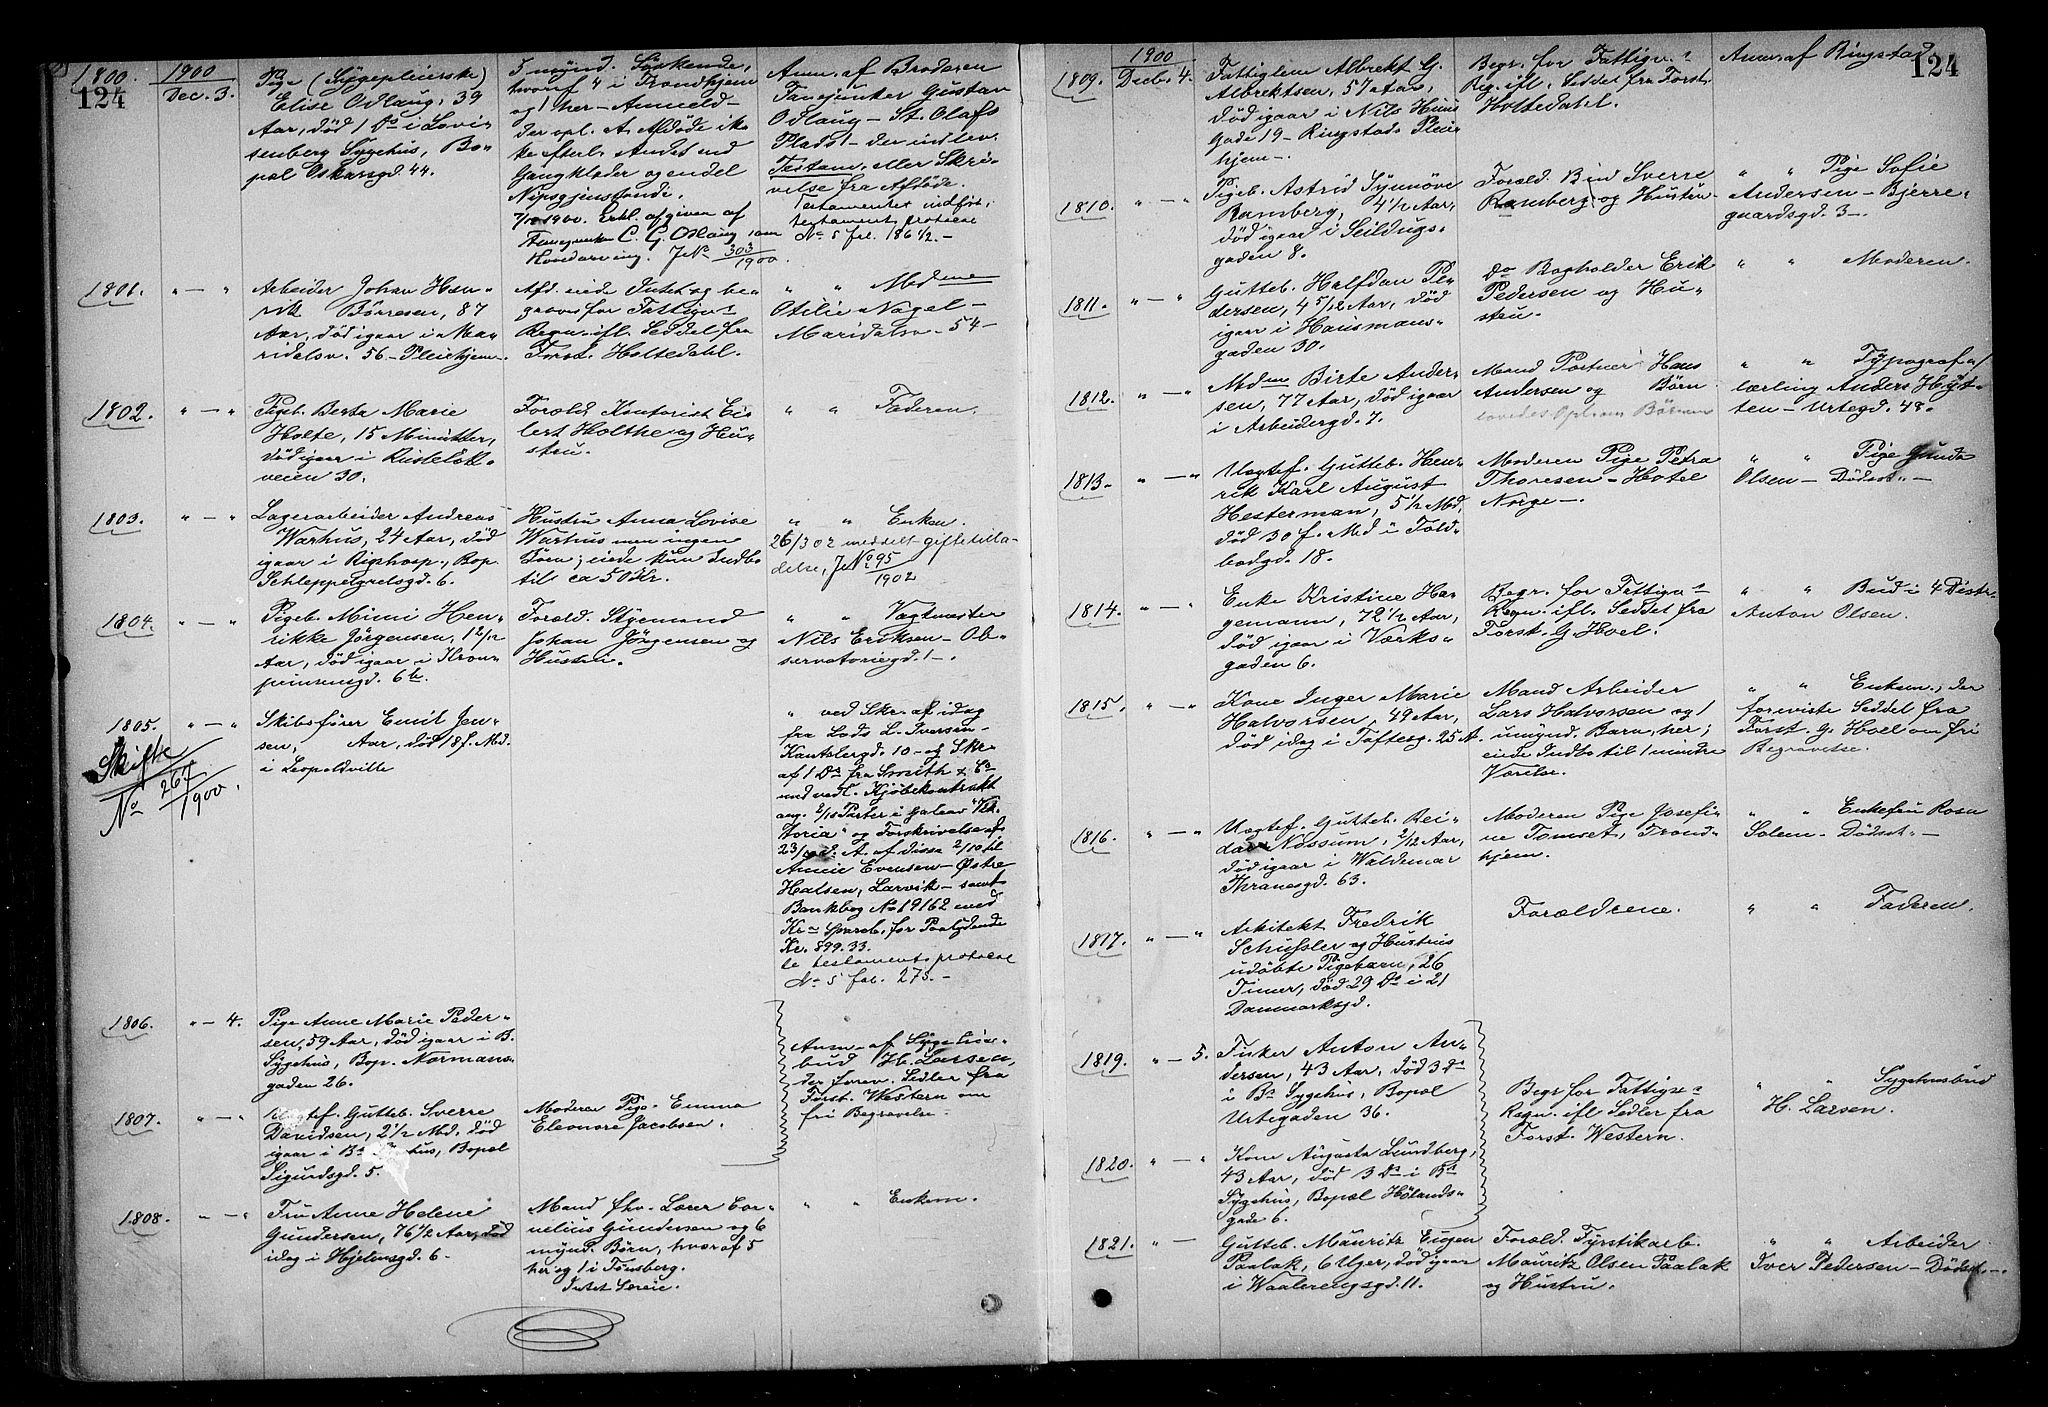 124
1800.
1900
Dec. 3.
Pige (Sygepleierske)
Elise Odlaug, 39
Aar, død 1 Ds i Lovi-
senberg Sygehus, Bo-
pæl Oskarsgd. 44.
5 mynd. Søskende,
hvoraf 4 i Trondhjem
og 1 her - Anmeld-
der opl. A. Afdøde ik-
ke efterl. Andet end
Gangklæder og endel
Nipsgjenstande.
7/12 1900. Erkl. afgiven af
C. G. Odlaug som
Hovedarving. J No 303/1900.
Anm. af Broderen
Fanejunker Gustav
Odlaug - St. Olafs
Plads 1 - der indlev.
Testam. eller Skri-
velse fra Afdøde.
Testamentet indført i
testaments protocol
No 5 fol. 186 1/2. -
1801.
" — "
Arbeider Johan Hen-
rik Børresen, 87
Aar, død igaar i Ma-
ridalsv. 56 - Pleiehjem -
Afd. eiede Intet og be-
graves for Fattigv.s
Regn. ifl. Seddel fra
Forst. Holtedahl.
" " Mdme
Otilie Nagel -
Maridalsv. 54 -
1802.
" — "
Pigeb. Berta Marie
Holte, 15 Minutter,
død igaar i Ruseløk-
veien 30.
Foræld. Kontorist Ei-
lert Holthe og Hu-
stru.
" " Faderen.
1803.
" — "
Lagerarbeider Andreas
Warhus, 24 Aar, død
igaar i Righosp., Bop.
Schleppegrelsgd. 6.
Hustru Anna Lovise
Warhus men ingen
Børn; eiede kun Indbo
til ca 50 Kr.
" " Enken.
26/3 02 meddelt giftetilla-
delse, J No 95/1902
1804.
" — "
Pigeb. Mimi Hen-
rikke Jørgensen, 1 2/12
Aar, død igaar i Kron-
prinsensgd. 6 b.
Foræld. Styrmand
Johan Jørgensen og
Hustru.
" " Vagtmester
Nils Eriksen - Ob-
servatoriegd. 1 -.
1805.
" — "
Skifte
No 267/1900.
Skibsfører Emil Jen-
sen, Aar, død 18 f. Md.
i Leopoldville
" ved Skr. af idag
fra Lods L. Iversen -
Kantslergd. 10 - og Skr.
af 1 Ds fra Smith & Co
med vedl. Kjøbekontrakt
ang. 2/15 Parter i Galeas "Vik-
toria" og Forskrivelse af
23/10 d. A. af disse 2/10 til
Annie Evensen - Østre
Halsen, Larvik - samt
Bankbog No 19162 med
Kr.a Spareb. for Paalydende
Kr. 599.33.
se testaments protocol
No 5 fol. 275. -
1806.
" — 4.
Pige Anne Marie Peder-
sen, 59 Aar, død igaar i B.
Sygehus, Bop. Normans-
gaden 26.
Anm. af Sygehus-
bud H. Larsen,
der forev. Sedler fra
Forst. Western om
fri Begravelse -
1807.
" — "
Uægtef. Gutteb. Sverre
Davidsen, 2 1/2 Md. død
igaar i Bs Sygehus, Bopæl
Sigurdsgd. 5.
Moderen Pige Emma
Eleonore Jacobsen.
1808.
" — "
Fru Anne Helene
Gundersen, 76 1/2 Aar, død
idag i Hjelmsgd. 6 -
Mand fhv. Lærer Cor-
nelius Gundersen og 6
mynd. Børn, hvoraf 5
her og 1 i Tønsberg.
Intet Særeie.
" " Enkem.
124
1900
1809.
Decb. 4.
Fattiglem Albrekt G.
Albrektsen, 57 Aar,
død igaar i Nils Huus
gade 19 - Ringstads Pleie
hjem -.
Begr. for Fattigv.s
Rg. ifl. Seddel fra Forst.
Holtedahl.
Anm. af Ringstad
1810.
" — "
Pigeb. Astrid Synnøve
Ramberg, 4 1/2 Aar,
død igaar i Seildugs-
gaden 8.
Foræld. Bud Sverre
Ramberg og Hustru
" " Pige Sofie
Andersen - Bjerre-
gaardsgd. 3 -.
1811.
" — "
Gutteb. Halfdan Pe-
dersen, 4 5/12 Aar, død
igaar i Hausmans-
gaden 30.
Do Bogholder Erik
Pedersen og Hu-
stru.
" " Moderen.
1812.
" — "
Mdme Birte Ander-
sen, 77 Aar, død igaar
i Arbeidergd. 7.
Mand Portner Hans
Andersen og Børn
lovedes Opl. om Børnene
" " Typograf
lærling Anders Høys-
ten - Urtegd. 48.
1813.
" — "
Uægtef. Gutteb. Hen-
rik Karl August
Hesterman, 5 1/2 Md,
død 30 f. Md i Told-
bodgd. 18.
Moderen Pige Petra
Thoresen - Hotel
Norge -.
" " Pige Gunda
Olsen - Dødsst. -
1814.
" — "
Enke Kristine Ha-
gemann, 72 1/2 Aar,
død igaar i Værks-
gaden 6.
Begr. for Fattigv.s
Regn. ifl. Seddel fra
Forst. G. Hoel.
" " Bud i 4 Distr.
Anton Olsen.
1815.
" — "
Kone Inger Marie
Halvorsen, 49 Aar,
død idag i Toftesg. 25 A
Mand Arbeider
Lars Halvorsen og 1
umynd. Barn, her;
eiede Indbo til 1 mindre
Værelse.
" " Enkem., der
foreviste Seddel fra
Forst. G. Hoel om fri
Begravelse.
1816.
" — "
Uægtef. Gutteb. Rei-
dar Nossum, 2/12 Aar,
død igaar i Waldemar
Thranesgd. 63.
Moderen Pige Josefi-
ne Tomset, Trond-
hjem.
" " Enkefru Rosa
Solem - Dødsst. -
1817.
" — "
Arkitekt Fredrik
Schussler og Hustrus
udøbte Pigebarn, 26
Timer, død 29 Ds i 21
Danmarksgd.
Forældrene.
" " Faderen.
1819.
" — 5.
Fisker Anton An-
dersen, 43 Aar, død 3 Ds
i Bs Sygehus, Bopæl
Urtegaden 36.
Begr. for Fattigv.s
Regn. ifl Sedler fra
Forst. Western.
" " Sygehusbud
H. Larsen.
1820.
" — "
Kone Augusta Lundberg,
43 Aar, død 3 Ds i Bs
Sygehus, Bopæl Hølands-
gade 6.
1821.
" —
Gutteb. Mauritz Eugen
Paalak, 6 Uger, død igaar
i Waalerengsgd. 11.
Foræld. Fyrstikarb.
Mauritz Olsen Paalak
og Hustru.
" " Arbeider
Iver Pedersen - Dødsst. -